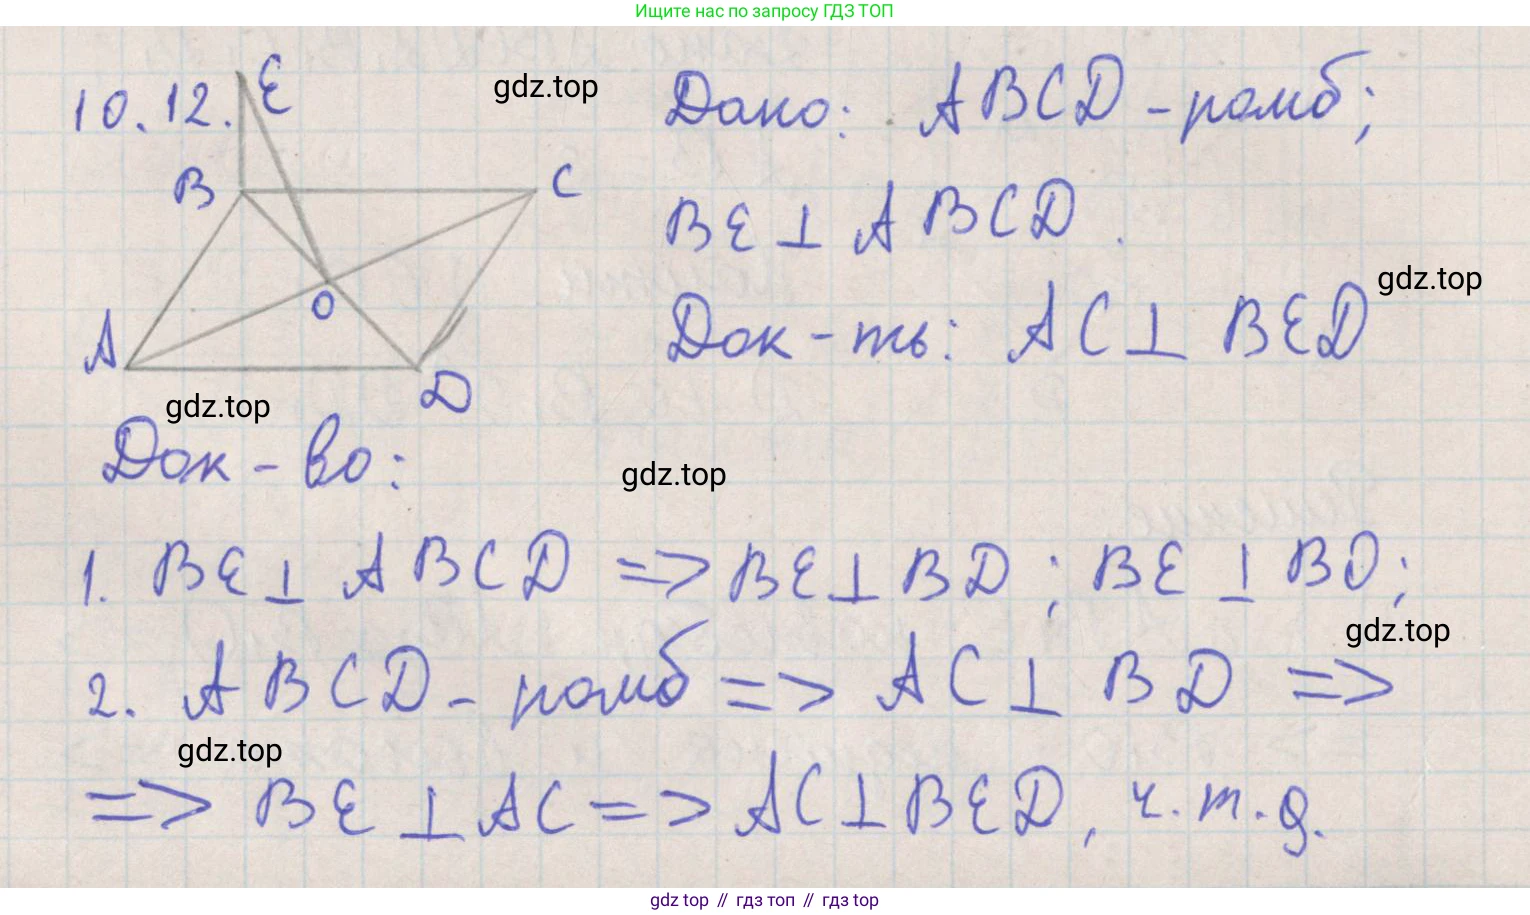 Ищите нас по запросу ГДЗ ТОП
10.12.
E
B
C
O
A
D
gdz.top
Дано: ABCD - ромб;
BE ⊥ ABCD.
gdz.top
Док-ть: AC ⊥ BED
gdz.top
Док-во:
gdz.top
1. BE ⊥ ABCD => BE ⊥ BD; BE ⊥ BO;
gdz.top
2. ABCD - ромб => AC ⊥ BD =>
gdz.top
=> BE ⊥ AC => AC ⊥ BED, ч.т.д.
gdz top // гдз топ // gdz top